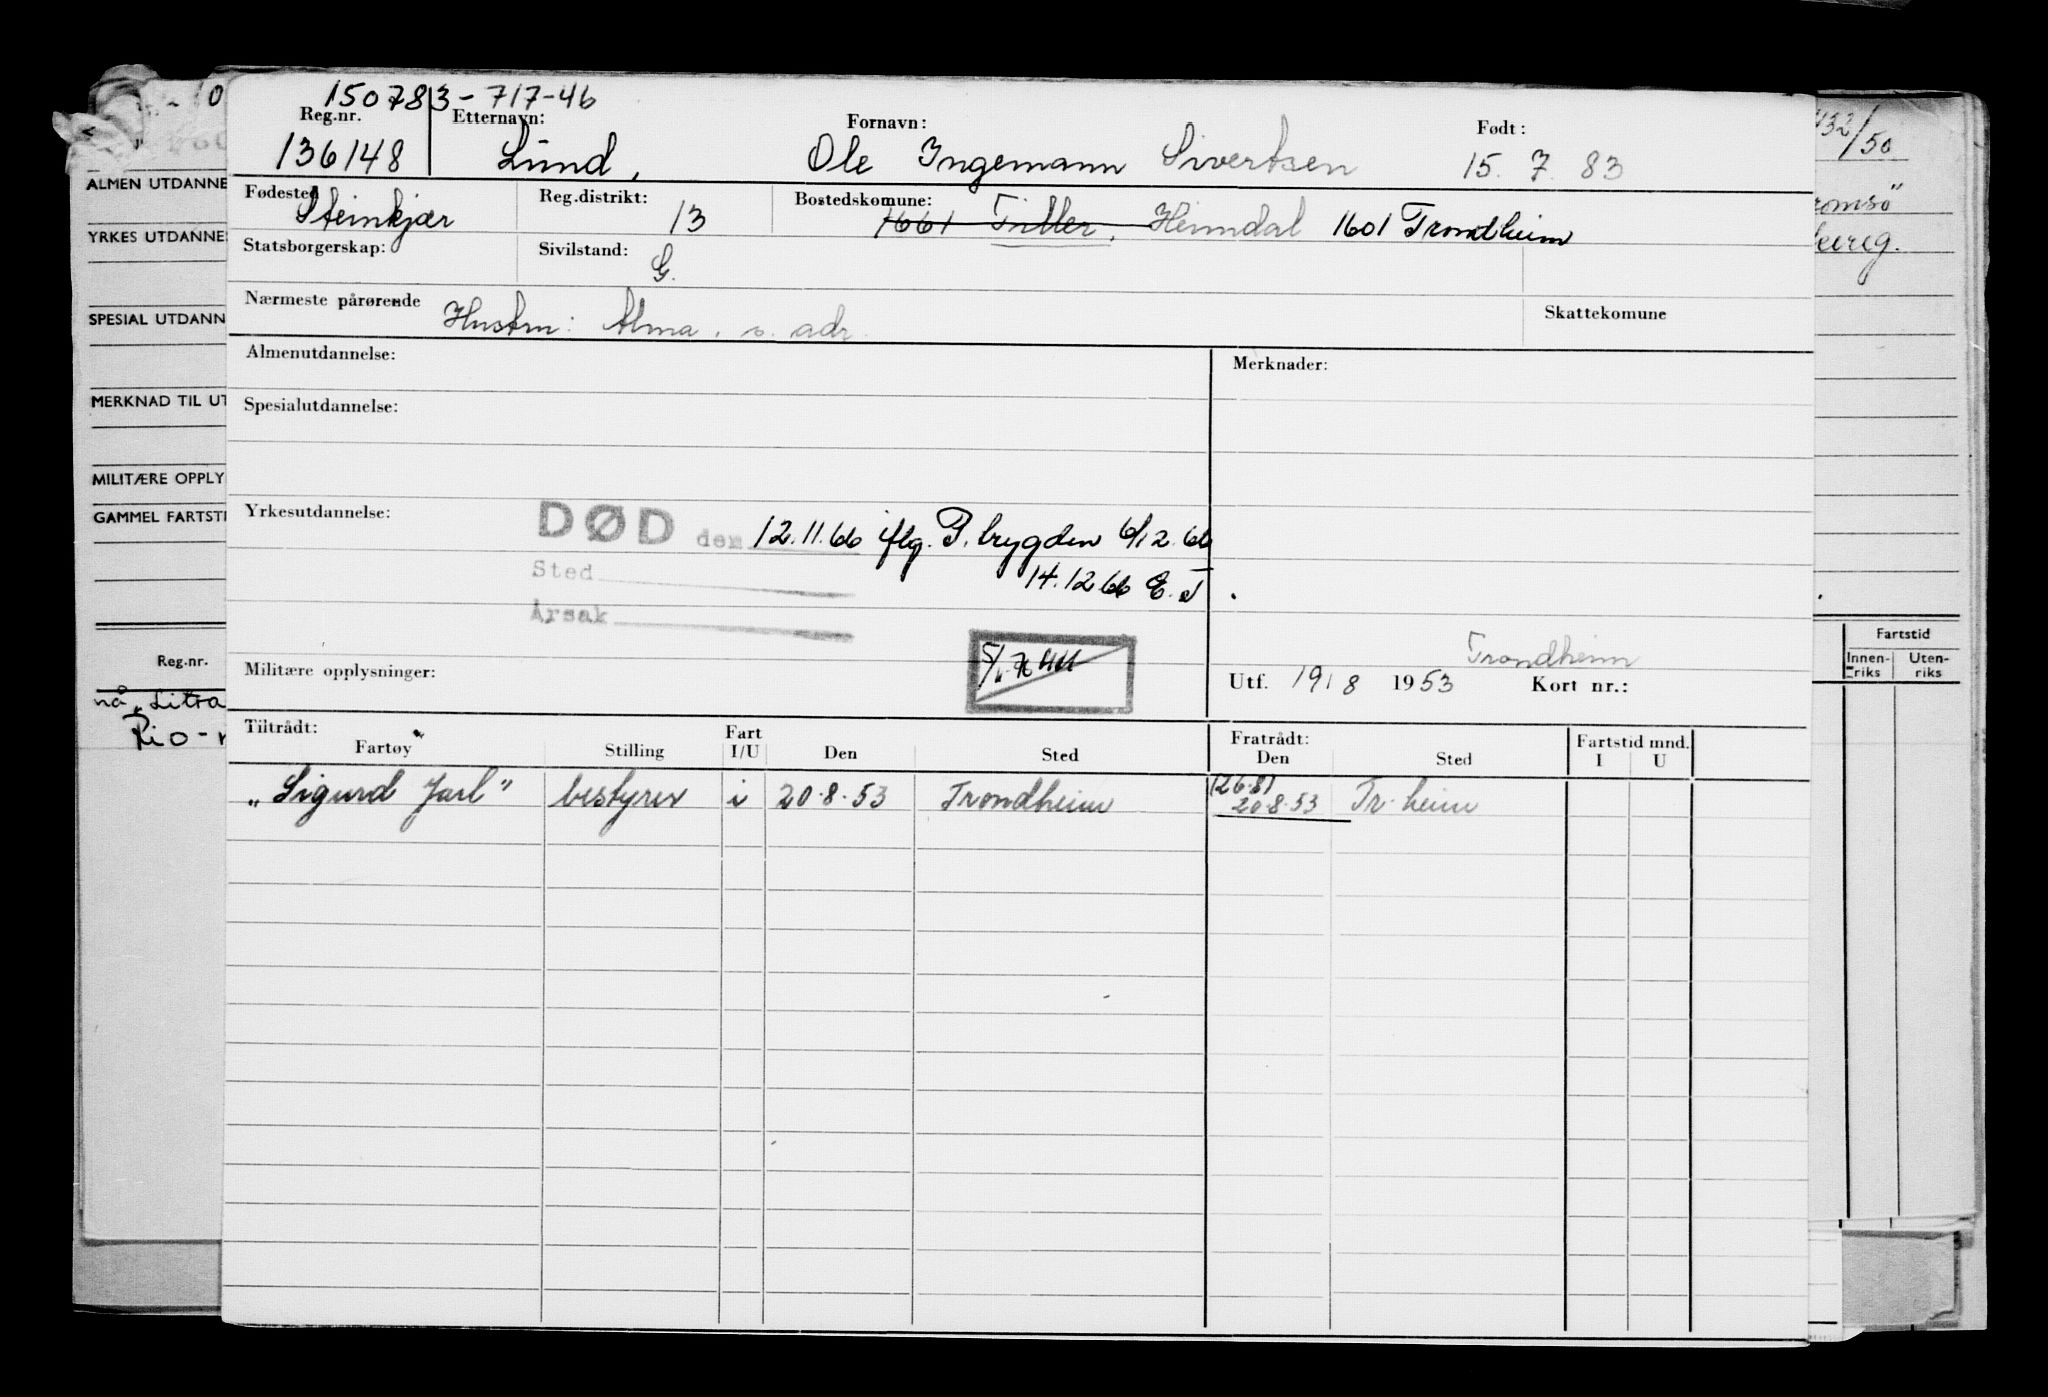 150783-717-46
Reg.nr. Etternavn: Fornavn: Født:
136148 Lund, Ole Ingemann Sivertsen 15. 7. 83
Fødested Steinkjær Reg.distrikt: 13 Bostedskomune: 1661 Tiller, Heimdal 1601 Trondheim
Statsborgerskap: Sivilstand: G.
Nærmeste pårørende Hustru: Alma, s. adr. Skattekomune
Almenutdannelse: Merknader:
Spesialutdannelse:
Yrkesutdannelse: DØD den 12.11.66 iflg. P. brygden 6/12.66
Sted 14.12 66 E. J
Årsak
Trondheim
Militære opplysninger: Utf. 19/8 1953 Kort nr.:
Tiltrådt: Fratrådt: Fartstid mnd.
Fartøy Stilling Fart I/U Den Sted Den Sted I U
(26.8)
"Sigurd Jarl" bestyrer i 20.8.53 Trondheim 20.8.53 Tr.heim
ALMEN UTDANNE
YRKES UTDANNE
SPESIAL UTDANN
MERKNAD TIL UT
MILITÆRE OPPLY
GAMMEL FARTSTI
Reg.nr.
nå "Litra
Rio-
432/50
romsö"
Fartstid
Innen-riks Uten-riks